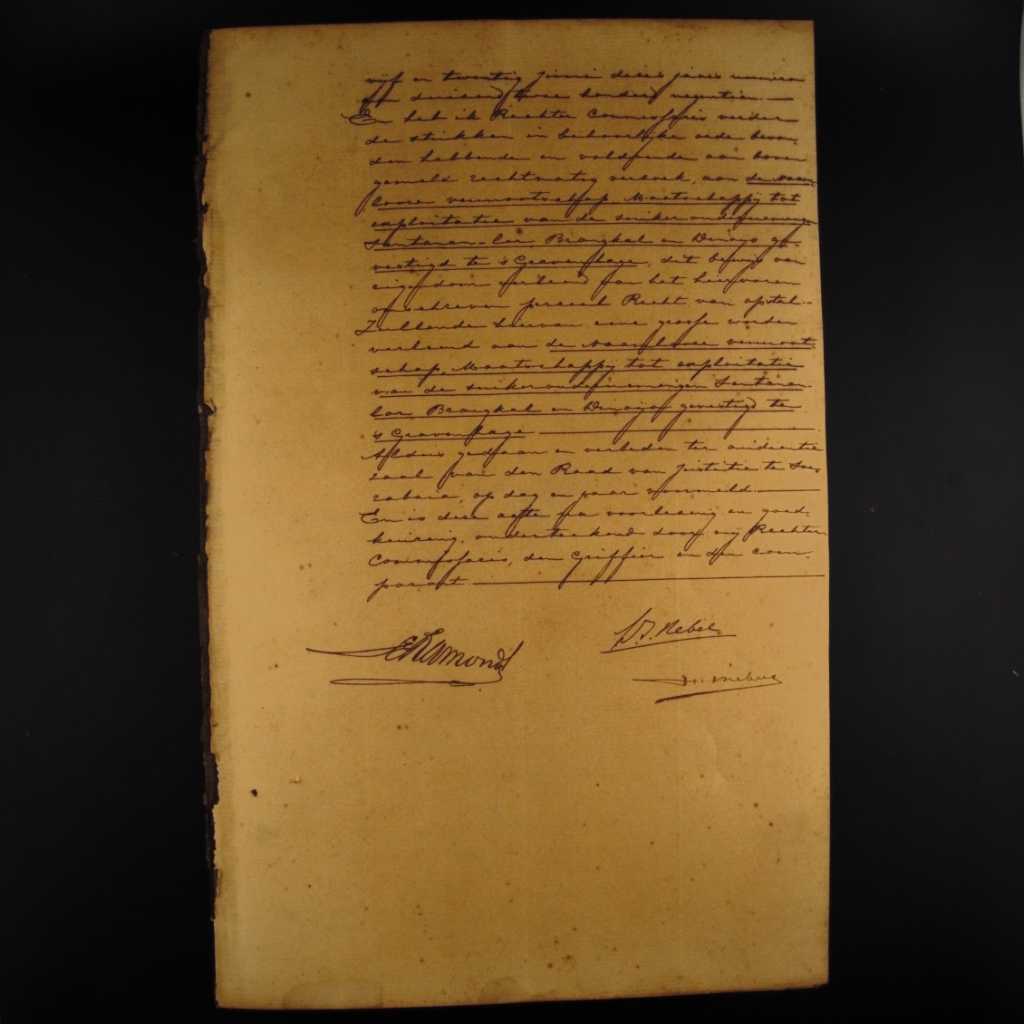 vijf en twentig Juni dezes jaars nummer
een duizend twee honderd negentien.
En heb ik Rechter Commissaris verder
de stukken in behoorlijke orde bevon-
den hebbende en voldoende aan boven
gemeld rechtmatig verzoek, aan de naam
looze vennootschap Maatschappij tot
exploitatie van de suikerondernemingen
Sentanen-Lor, Brangkal en Dinoyo ge-
vestigd te 's Gravenhage, dit bewijs van
eigendom verleend van het hiervoren
omschreven perceel Recht van opstal.-
Zullende hiervan eene grosse worden
verleend aan de Naamlooze vennoot-
schap Maatschappij tot exploitatie
van de suikerondernemingen Sentanen
Lor, Brangkal en Dinoyo gevestigd te
's Gravenhage
Aldus gedaan en verleden ter audientie
zaal van den Raad van Justitie te Soe-
rabaia, op dag en jaar voormeld
En is deze acte na voorlezing en goed-
keuring, onderteekend door mij Rechter
Commissaris, den Griffier en den com-
parant